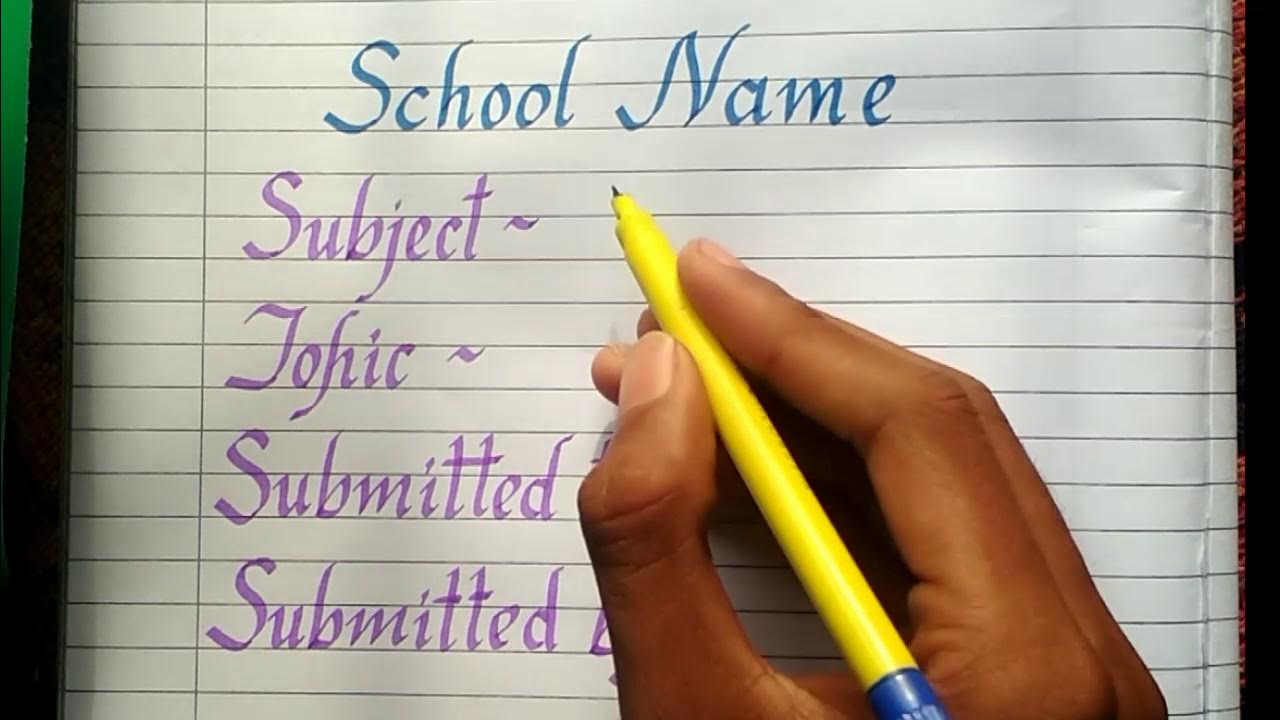 School Name
Subject ~
Topic ~
Submitted
Submitted